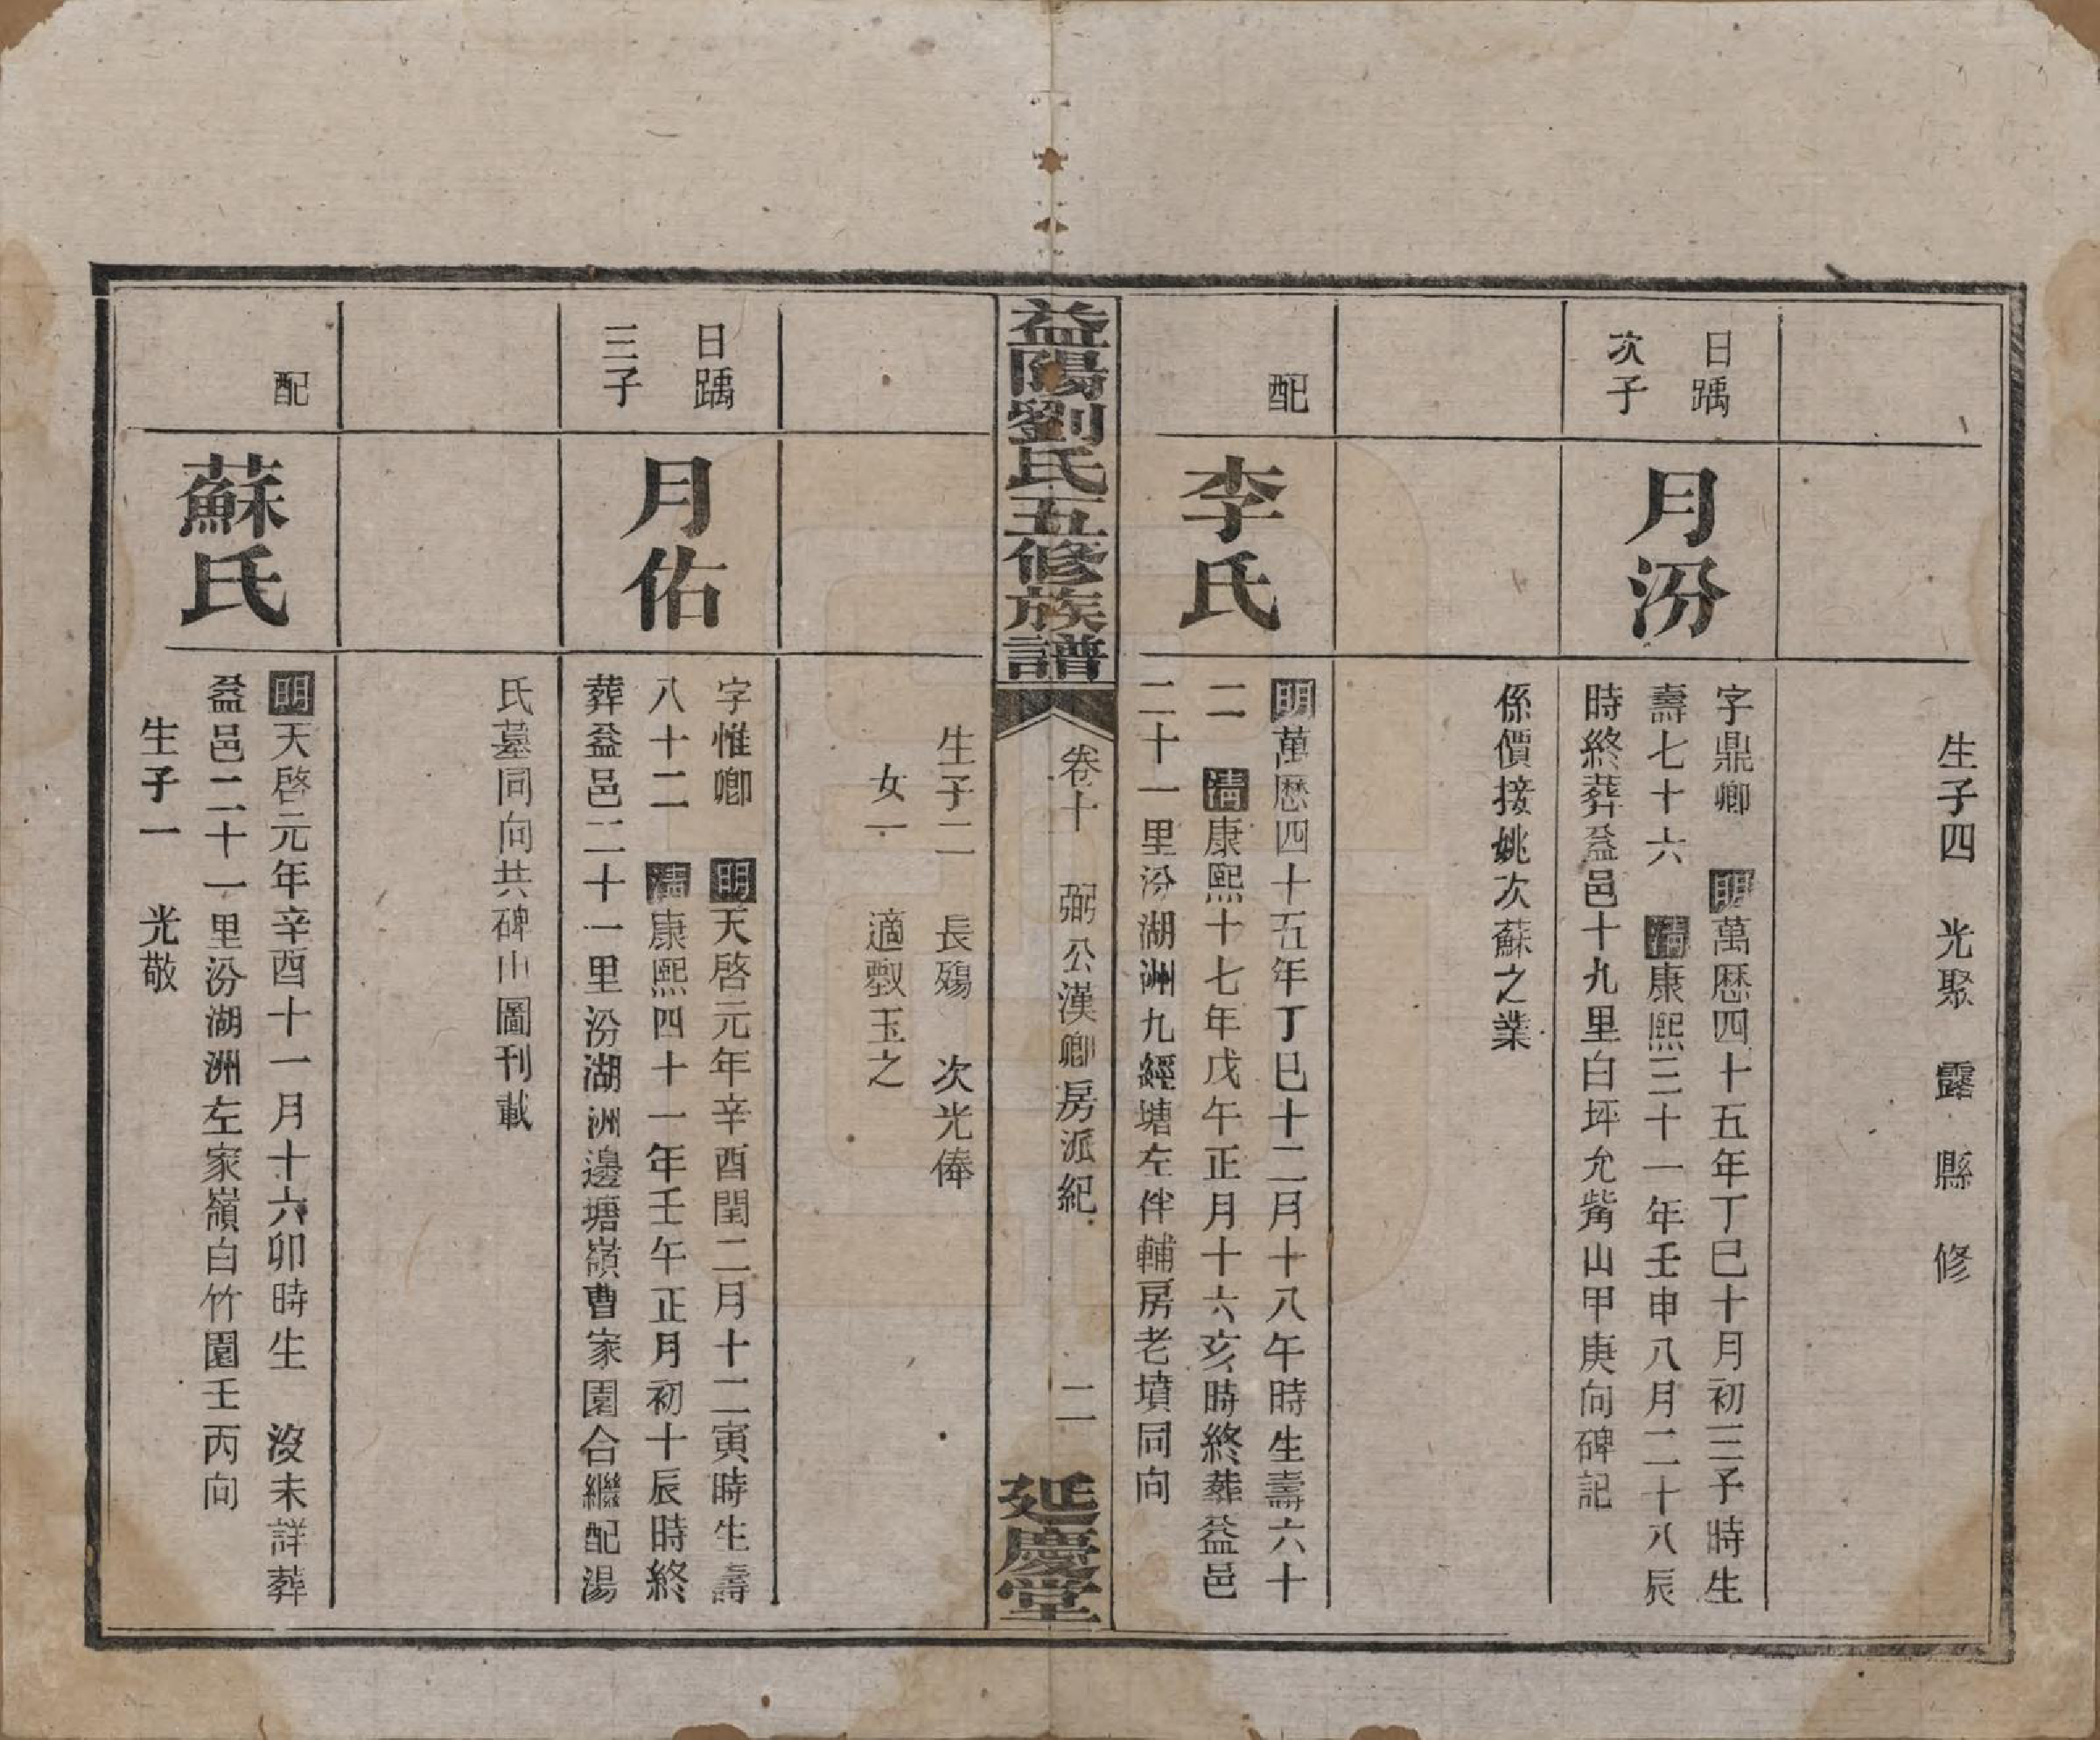 生子四 光聚 露 縣 修
日踽
次子
月汾
字鼎卿 明萬歷四十五年丁巳十月初三予時生
壽七十六 清康熙三十一年壬申八月二十八辰
時終葬益邑十九里白坪允觜山甲庚向碑記
係價接姚次蘇之業
配
李氏
明萬歷四十五年丁巳十二月十八午時生壽六十
二 清康熙十七年戊午正月十六亥時終葬益邑
二十一里汾湖洲九經塘左伴輔房老墳同向
益陽劉氏五修族譜
卷十 弼公漢卿房派紀 二
延慶堂
生子二 長殤 次光俸
女一 適 玉之
日踽
三子
月佑
字惟卿 明天啓元年辛酉閏二月十二寅時生壽
八十二 清康熙四十一年壬午正月初十辰時終
葬益邑二十一里汾湖洲邊塘嶺曹家園合繼配湯
氏墓同向共碑山圖刊載
配
蘇氏
明天啓元年辛酉十一月十六卯時生 沒未詳葬
益邑二十一里汾湖洲左家嶺白竹園壬丙向
生子一 光敬